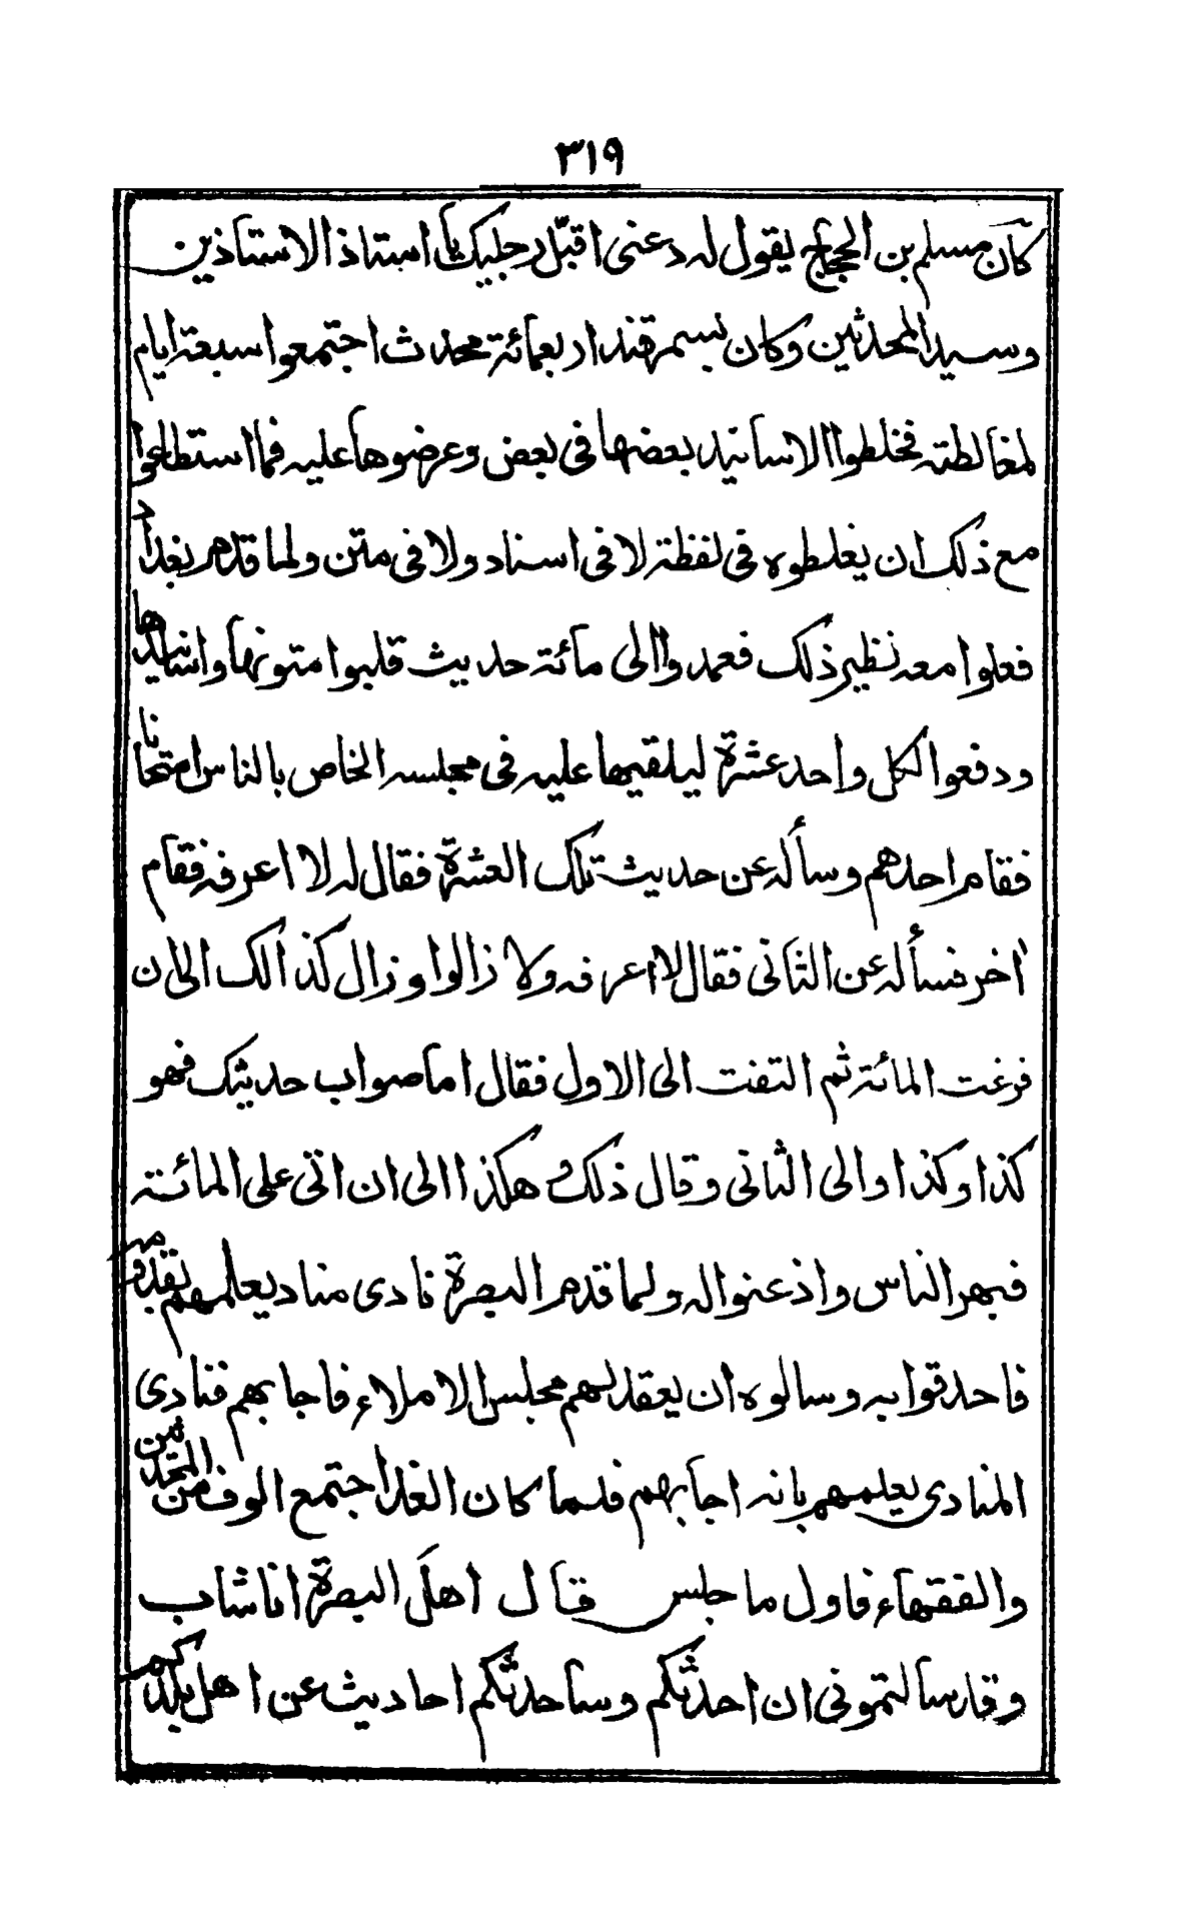 ٣١٩
كان مسلم بن الحجاج يقول له دعنى اقبل رجليك يا استاذ الاستاذين
وسيد المحدثين وكان بسمرقند اربعمائة محدث اجتمعوا سبعة ايام
لمغالطته فخلطوا الاسانيد بعضها فى بعض وعرضوها عليه فما استطاعوا
مع ذلك ان يغلطوه فى لفظة لا فى اسناد ولا فى متن ولما قدم بغداد
فعلوا معه نظير ذلك فعمدوا الى مائة حديث قلبوا متونها واسانيدها
ودفعوا لكل واحد عشرة ليلقيها عليه فى مجلسه الخاص بالناس امتحانا
فقام احدهم وسأله عن حديث تلك العشرة فقال له لا اعرفه فقام
اخر فسأله عن الثانى فقال لا اعرفه ولا زالوا وزال كذالك الى ان
فرغت المائة ثم التفت الى الاول فقال اما صواب حديثك فهو
كذا وكذا والى الثانى وقال ذلك هكذا الى ان اتى على المائة
فبهر الناس واذعنوا له ولما قدم البصرة نادى مناد يعلمهم بقدومه
فاحدقوا به وسالوه ان يعقد لهم مجلس الاملاء فاجابهم فنادى
المنادى يعلمهم بانه اجابهم فلما كان الغد اجتمع الوف من المحدثين
والفقهاء فاول ما جلس قال اهل البصرة انا شاب
وقد سالتمونى ان احدثكم وساحدثكم احاديث عن اهل بلدكم